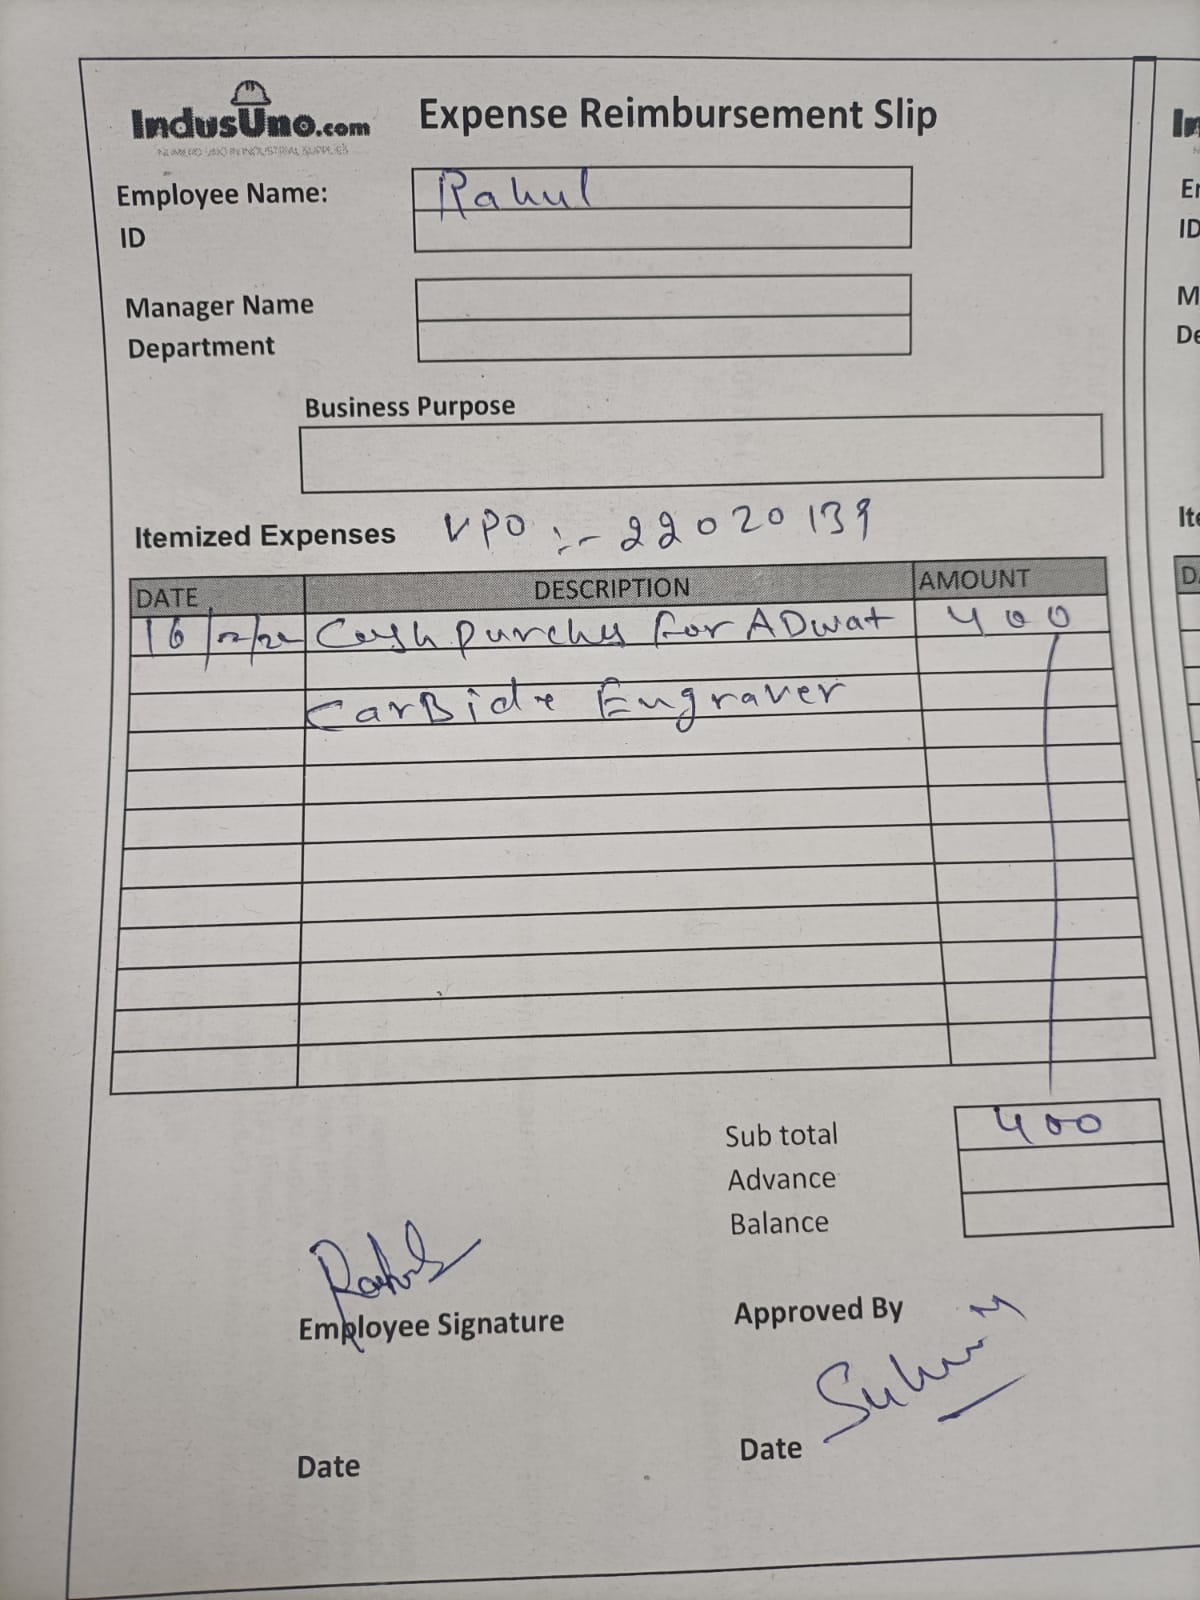 IndusUno.com
NUMERO UNO IN INDUSTRIAL SUPPLIES
Expense Reimbursement Slip
Employee Name: Rahul
ID
Manager Name
Department
Business Purpose
Itemized Expenses VPO :- 22020139
DATE DESCRIPTION AMOUNT
16/2/22 Cash purches for ADwat 400
CarBide Engraver
Sub total 400
Advance
Balance
Rahul
Employee Signature
Approved By
Date
Date
In
Er
ID
M
De
Ite
DA